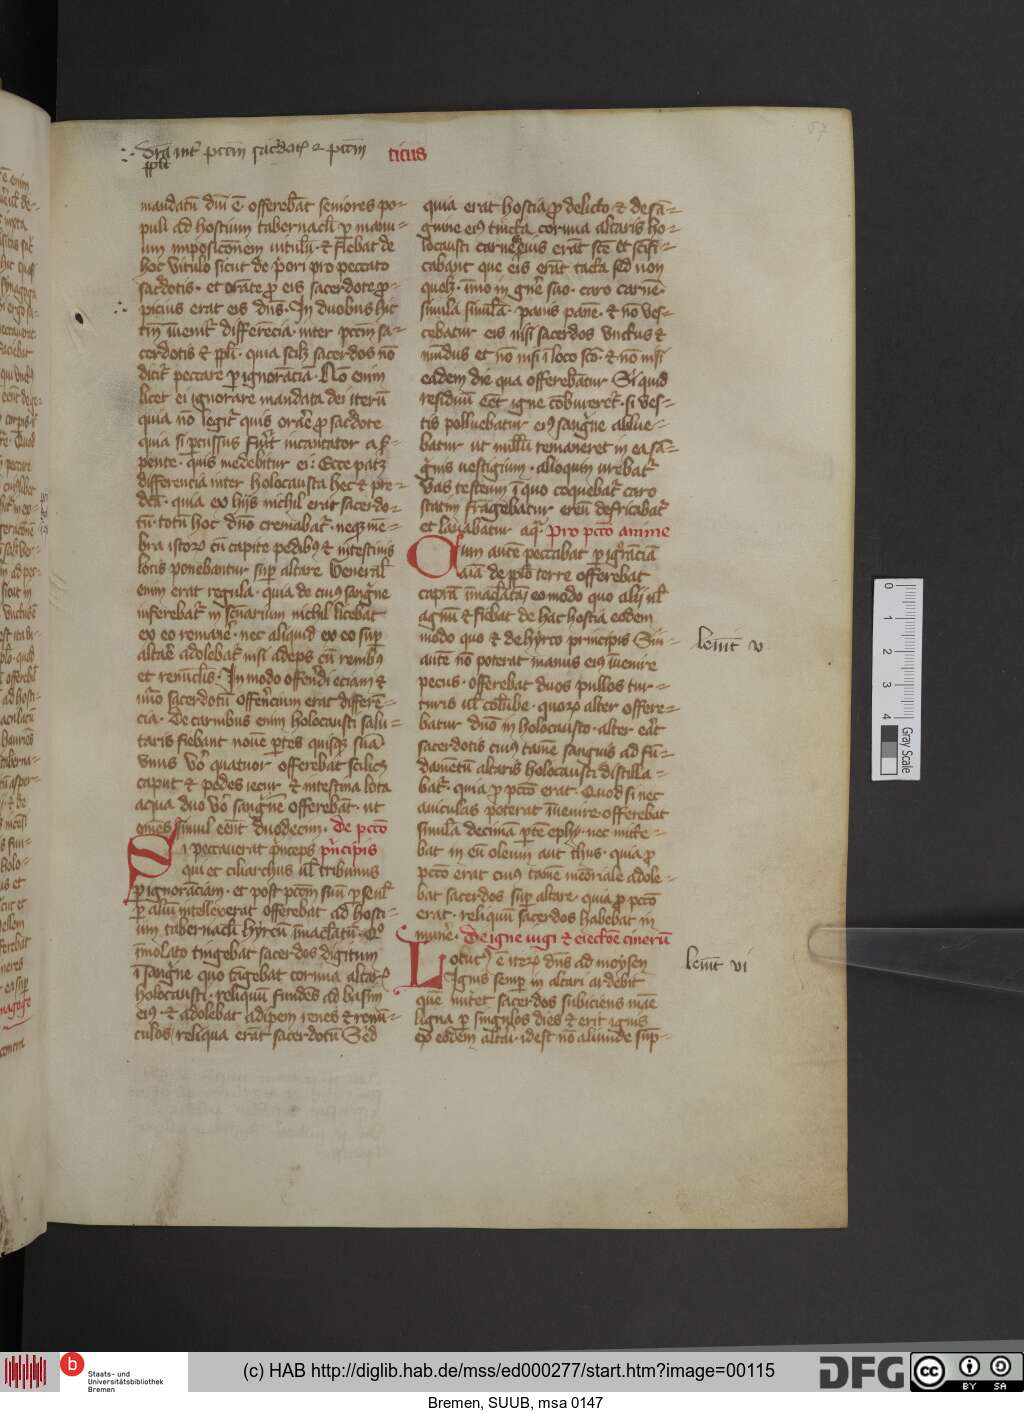 ticus
mandatū dn̄i ē. offerebāt seniores po-
puli ad hostium tabernacli ꝑ manu-
um imposicōnem uitulū. ⁊ fiebat de
hoc vitulo sicut de pori pro peccato
sacdotis. et orāte ꝓ eis sacerdote ꝓ-
picius erat eis dn̄s. In duobus hic
tm̄ īuenit differēcia. inter pccm̄ sa-
cerdotis ⁊ ppli. quia scilꝫ sacerdos nō
dicit peccare ꝑ ignorāciā. Nō enim
licet ei ignorare mandata dei iterū
quia nō legit quis orare ꝓ sacdote
quia si ꝑcussus fuit incantator a ser-
pente. quis medebitur ei: Ecce patꝫ
differencia inter holocausta hec ⁊ pre-
dcā. quia ex hijs nichil erat sacerdo-
tū. totū hoc dn̄o cremabat. neqꝫ me-
bra istoꝝ cū capite pedibꝰ ⁊ intestinis
lotis ponebantur suꝑ altare Generalꝭ
enim erat regula. quia de cuiꝰ sangne
inferebat in scuarium nichil licebat
ex eo remane. nec aliquid ex eo suꝑ
altare adolebat nisi adeps cū renibꝰ
et renuclis. In modo offerēdi eciam ⁊
imo sacerdotū offerēcium erat differē-
cia. De carnibus enim holocausti salu-
taris fiebant noue ꝑtes quisqꝫ suā
Vnus vo quatuor offerebat scilicꝫ
caput ⁊ pedes iecur ⁊ intestina lota
aqua duo vo sangne offerebāt. ut
om̄es simul eēnt duodecim. De pccō
Si peccauerat princeps principis
qui et ciliarchus ul tribunus
ꝑ ignorāciam. et post pccm̄ suū ꝑ se ul
ꝑ aliū intellexerat offerebat ad hosti-
um tabernacli hyrcū īmaclatū. Qo
īmolato tingebat sacerdos digitum
ī sangne quo tāgebat cornua altaris
holocausti. reliquū fundēs ad basim
eiꝰ. ⁊ adolebat adipem renes ⁊ renū-
culos reliqua erāt sacerdotū Sed
quia erat hostia ꝓ delicto ⁊ de sā-
gune eiꝰ tincta cornua altaris ho-
locausti carnes eius erāt scē et scīfi-
cabant que eis erāt tacta sed non
quelꝫ. īmo in gne suo. caro carnē.
simila similā. panis pane. ⁊ nō ves-
cebatur eis nisi sacerdos unctus ⁊
mūdus et nō nisi ī loco scō. ⁊ nō nisi
eadem die qua offerebātur Si quid
residuū eēt igne cōbureret. si ves-
tis polluebatur eiꝰ sangne ablue-
batur ut nullū remaneret in ea sā-
gnis uestigium. alioquin urebat
Vas testeum ī quo coquebat caro
statim frāgebatur ereū defricabat
et lauabatur aqꝰ. Pro pccō anime
Cum autē peccabat ꝑ ignorāciā
aīa de pplo terre offerebat
caprā īmaclatā eo modo quo alij ul
agnū ⁊ fiebat de hac hostia eodem
modo quo ⁊ de hyrco principis Sin-
autē nō poterat manus eiꝰ īuenire
pecus. offerebat duos pullos tur-
turis ul colūbe. quoꝝ alter offere-
batur dn̄o in holocausto. alter. erat
sacerdotis cuiꝰ tamē sanguis ad fū-
damētū altaris holocausti distilla-
bat. quia ꝑ pccō erat. Quod si nec
auiculas poterat īuenire. offerebat
simila decimā ꝑtē ephy. nec mitte-
bat in eū oleum aut thus. quia ꝑ
pccō erat cuiꝰ tamē memoriale adole-
bat sacerdos suꝑ altare. quia ꝓ pccō
erat. reliquū sacerdos habebat in
mune. De igne iugi ⁊ eiectōe cinerū
Locutꝰ ē iteꝝ dn̄s ad moysen
Ignis semꝑ in altari ardebit
quē nutriet sacerdos subiciens mane
ligna ꝑ singulos dies ⁊ erit ignis
ex eodem altari. idest nō aliunde suꝑ-
leuit v
leuit vi
57
0
1
2
3
4
Gray Scale
b Staats- und
Universitätsbibliothek
Bremen
(c) HAB http://diglib.hab.de/mss/ed000277/start.htm?image=00115
DFG
cc BY SA
Bremen, SUUB, msa 0147